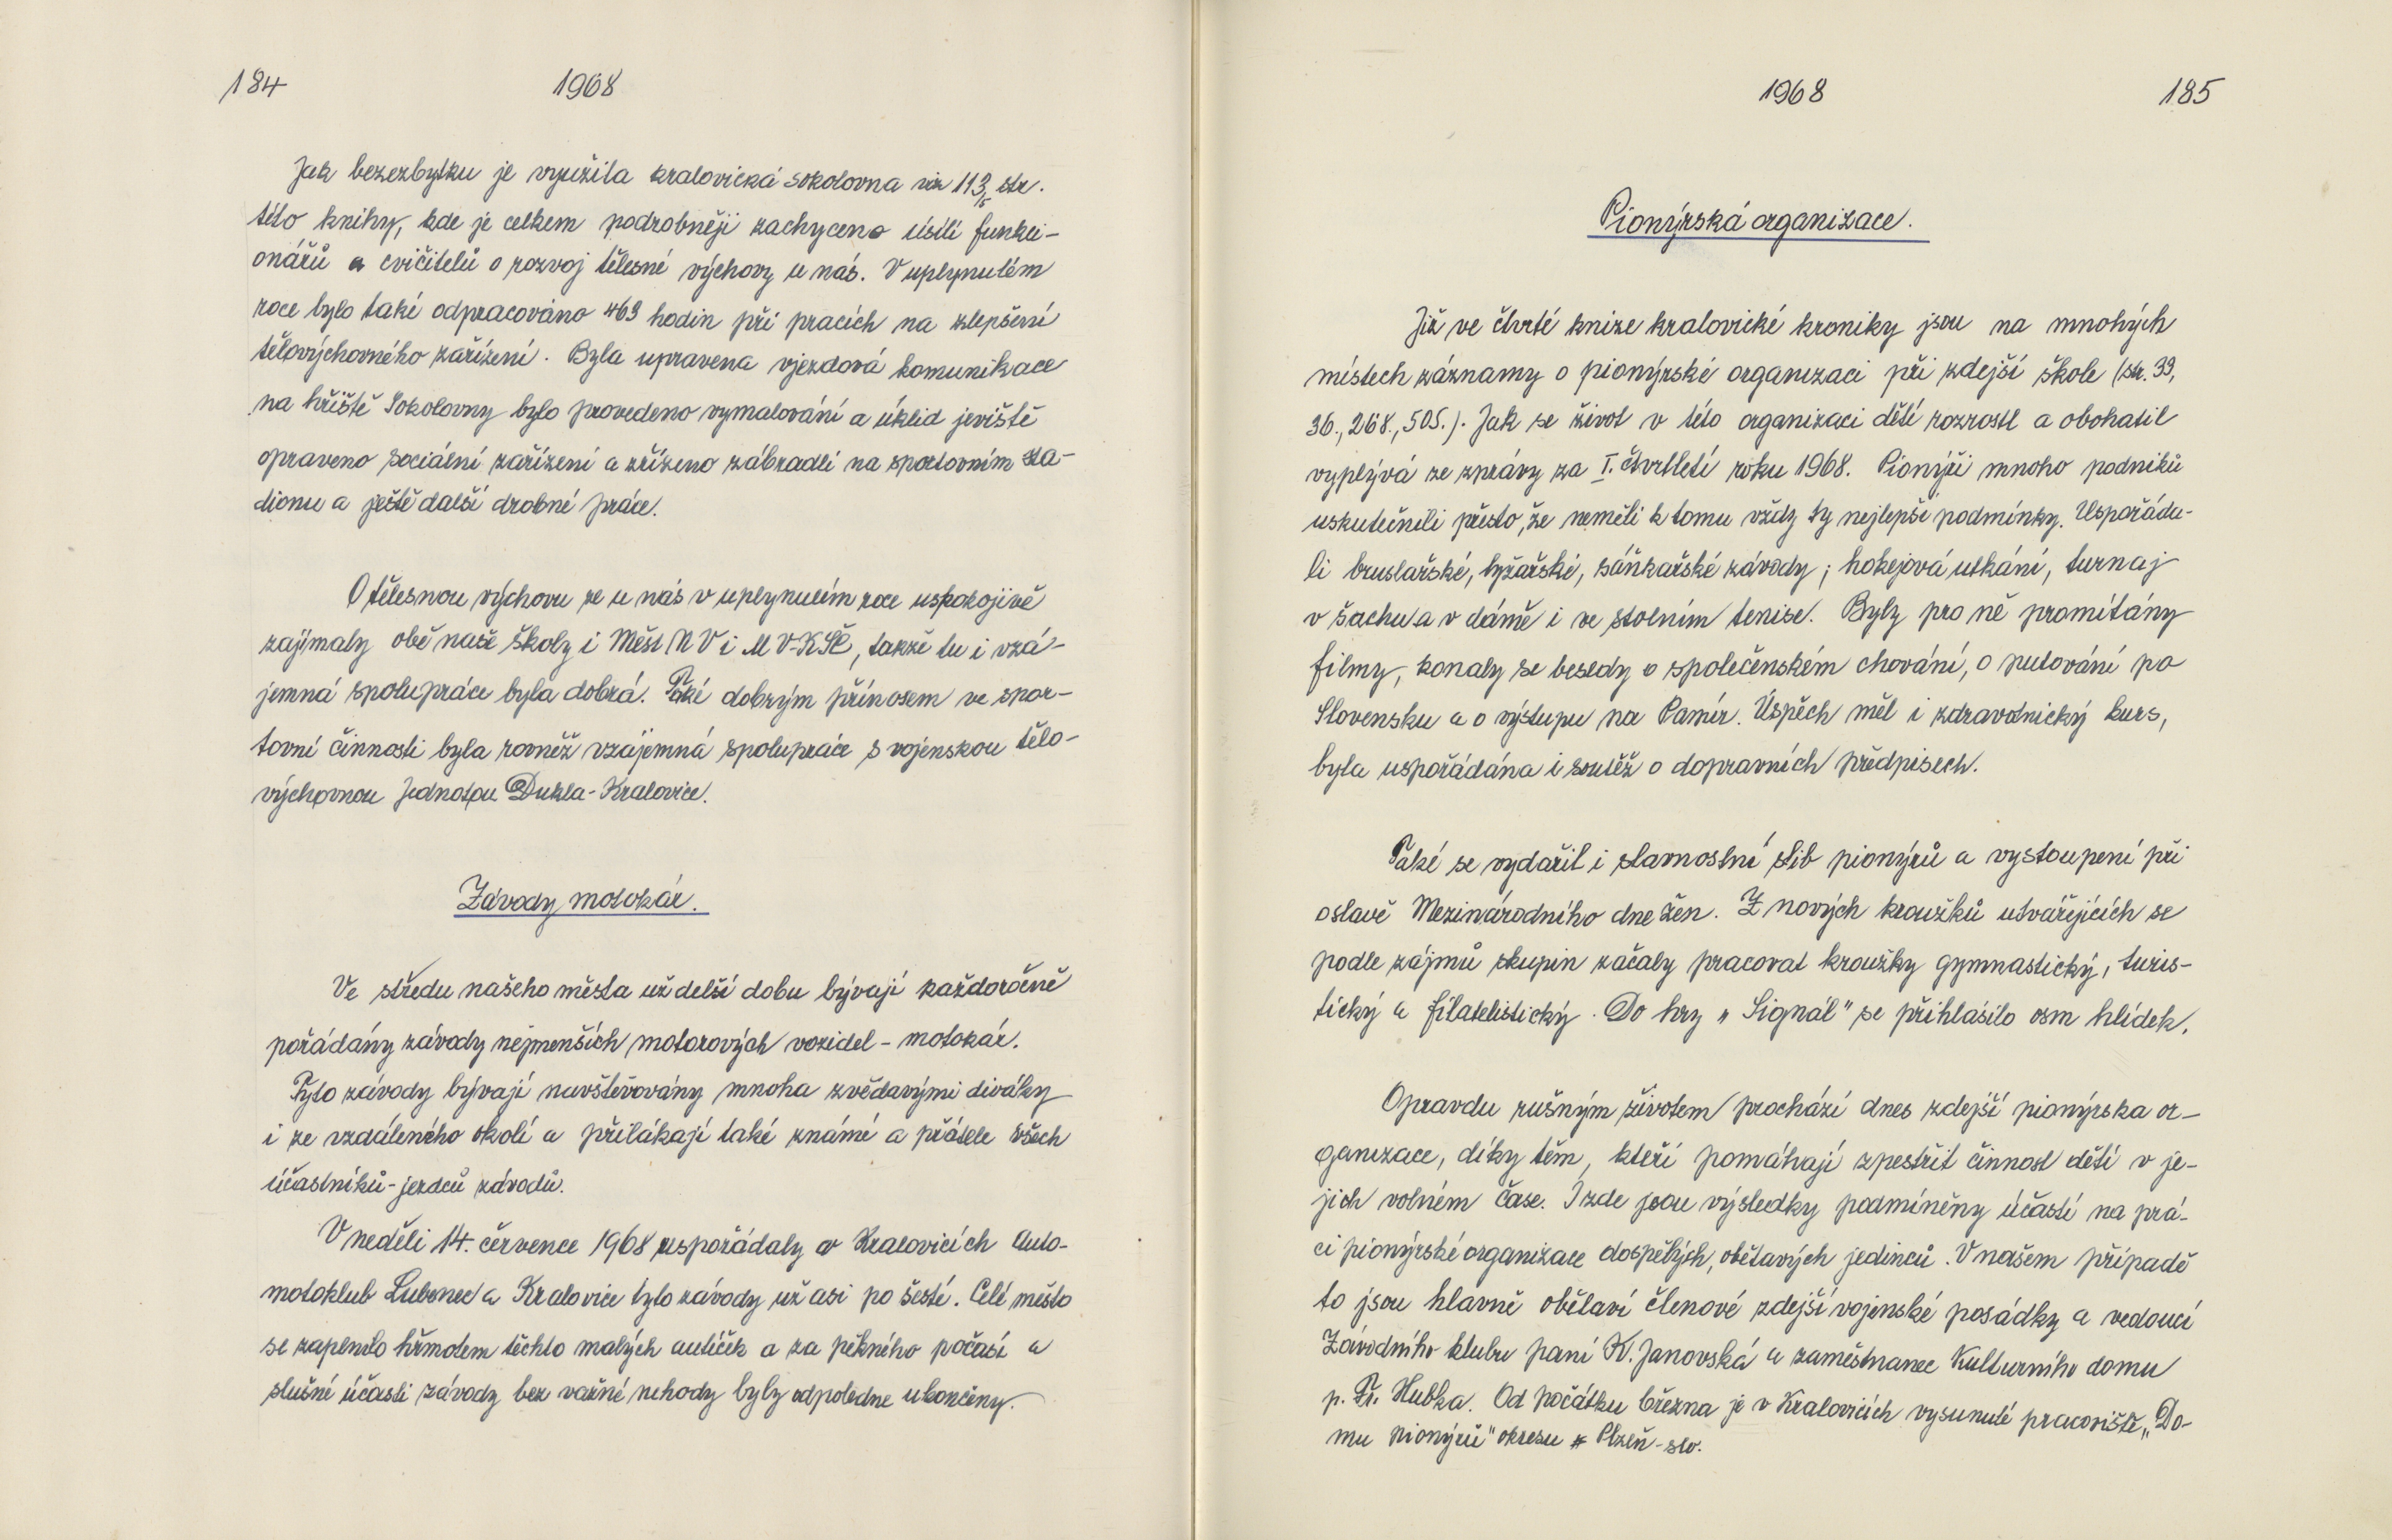 184
1968
Jak bezezbytku je využita kralovická sokolovna viz 113/5 str.
této knihy, kde je celkem podrobněji zachyceno úsilí funkci-
onářů a cvičitelů o rozvoj tělesné výchovy u nás. V uplynulém
roce bylo také odpracováno 469 hodin při pracích na zlepšení
tělovýchovného zařízení. Byla upravena vjezdová komunikace
na hřiště Sokolovny bylo provedeno vymalování a úklid jeviště
opraveno sociální zařízení a zřízeno zábradlí na sportovním sta-
dionu a ještě další drobné práce.
O tělesnou výchovu se u nás v uplynulém roce uspokojivě
zajímaly obě naše školy i Měst NV i MV-KSČ, takže tu i vzá-
jemná spolupráce byla dobrá. Také dobrým přínosem ve spor-
tovní činnosti byla rovněž vzájemná spolupráce s vojenskou tělo-
výchovnou Jednotou Dukla-Kralovice.
Závody motokár.
Ve středu našeho města už delší dobu bývají každoročně
pořádány závody nejmenších motorových vozidel - motokár.
Tyto závody bývají navštěvovány mnoha zvědavými diváky
i ze vzdáleného okolí a přilákají také známé a přátele všech
účastníků-jezdců závodů.
V neděli 14. července 1968 uspořádaly v Kralovicích Auto-
motoklub Lubenec a Kralovice tyto závody už asi po šesté. Celé město
se zaplnilo hřmotem těchto malých autíček a za pěkného počasí a
slušné účasti závody bez vážné nehody byly odpoledne ukončeny.
1968
185
Pionýrská organizace.
Již ve čtvrté knize kralovické kroniky jsou na mnohých
místech záznamy o pionýrské organizaci při zdejší škole (str. 39,
36., 268., 505.). Jak se život v této organizaci dětí rozrostl a obohatil
vyplývá ze zprávy za I. čtvrtletí roku 1968. Pionýři mnoho podniků
uskutečnili přesto, že neměli k tomu vždy ty nejlepší podmínky. Uspořáda-
li bruslařské, lyžařské, sáňkařské závody; hokejová utkání, turnaj
v šachu a v dámě i ve stolním tenise. Byly pro ně promítány
filmy, konaly se besedy o společenském chování, o putování po
Slovensku a o výstupu na Pamír. Úspěch měl i zdravotnický kurs,
byla uspořádána i soutěž o dopravních předpisech.
Také se vydařil i slavnostní slib pionýrů a vystoupení při
oslavě Mezinárodního dne žen. Z nových kroužků utvářejících se
podle zájmů skupin začaly pracovat kroužky gymnastický, turis-
tický a filatelistický. Do hry „Signál" se přihlásilo osm hlídek.
Opravdu rušným životem prochází dnes zdejší pionýrska or-
ganizace, díky těm, kteří pomáhají zpestřit činnost dětí v je-
jich volném čase. I zde jsou výsledky podmíněny účastí na prá-
ci pionýrské organizace dospělých, obětavých jedinců. V našem případě
to jsou hlavně obětaví členové zdejší vojenské posádky a vedoucí
Závodního klubu paní K. Janovská a zaměstnanec Kulturního domu
p. Fr. Hubka. Od počátku března je v Kralovicích vysunuté pracoviště „Do-
mu pionýrů" okresu Plzeň-sev.